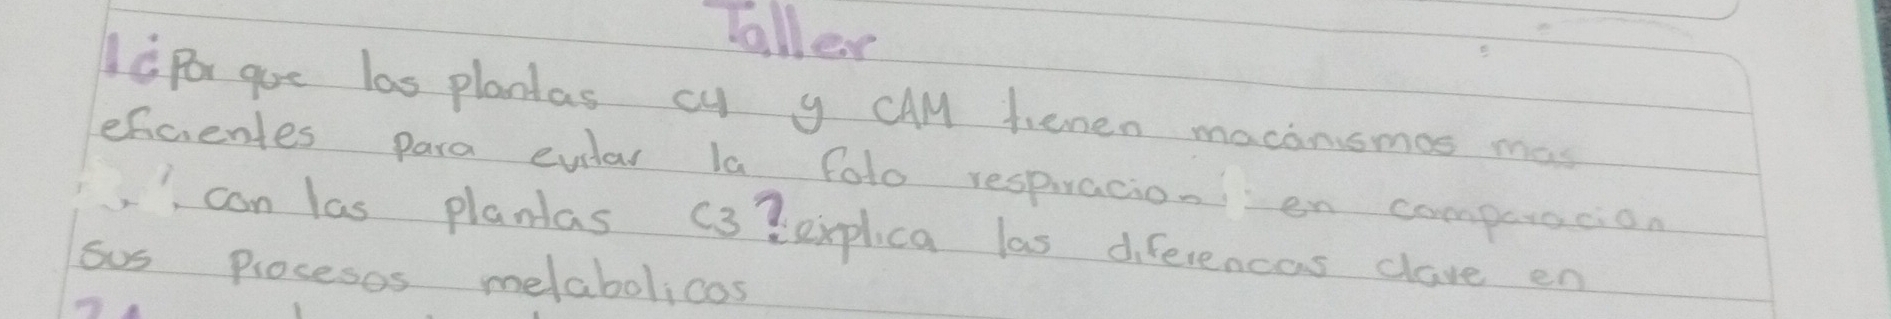 Taller
1 ¿Por que las plantas c4 y CAM tienen macánismos mas
eficientes para evitar la foto respiracion en comparacion
con las plantas C3? explica las diferencas clave en
sus procesos metabolicos